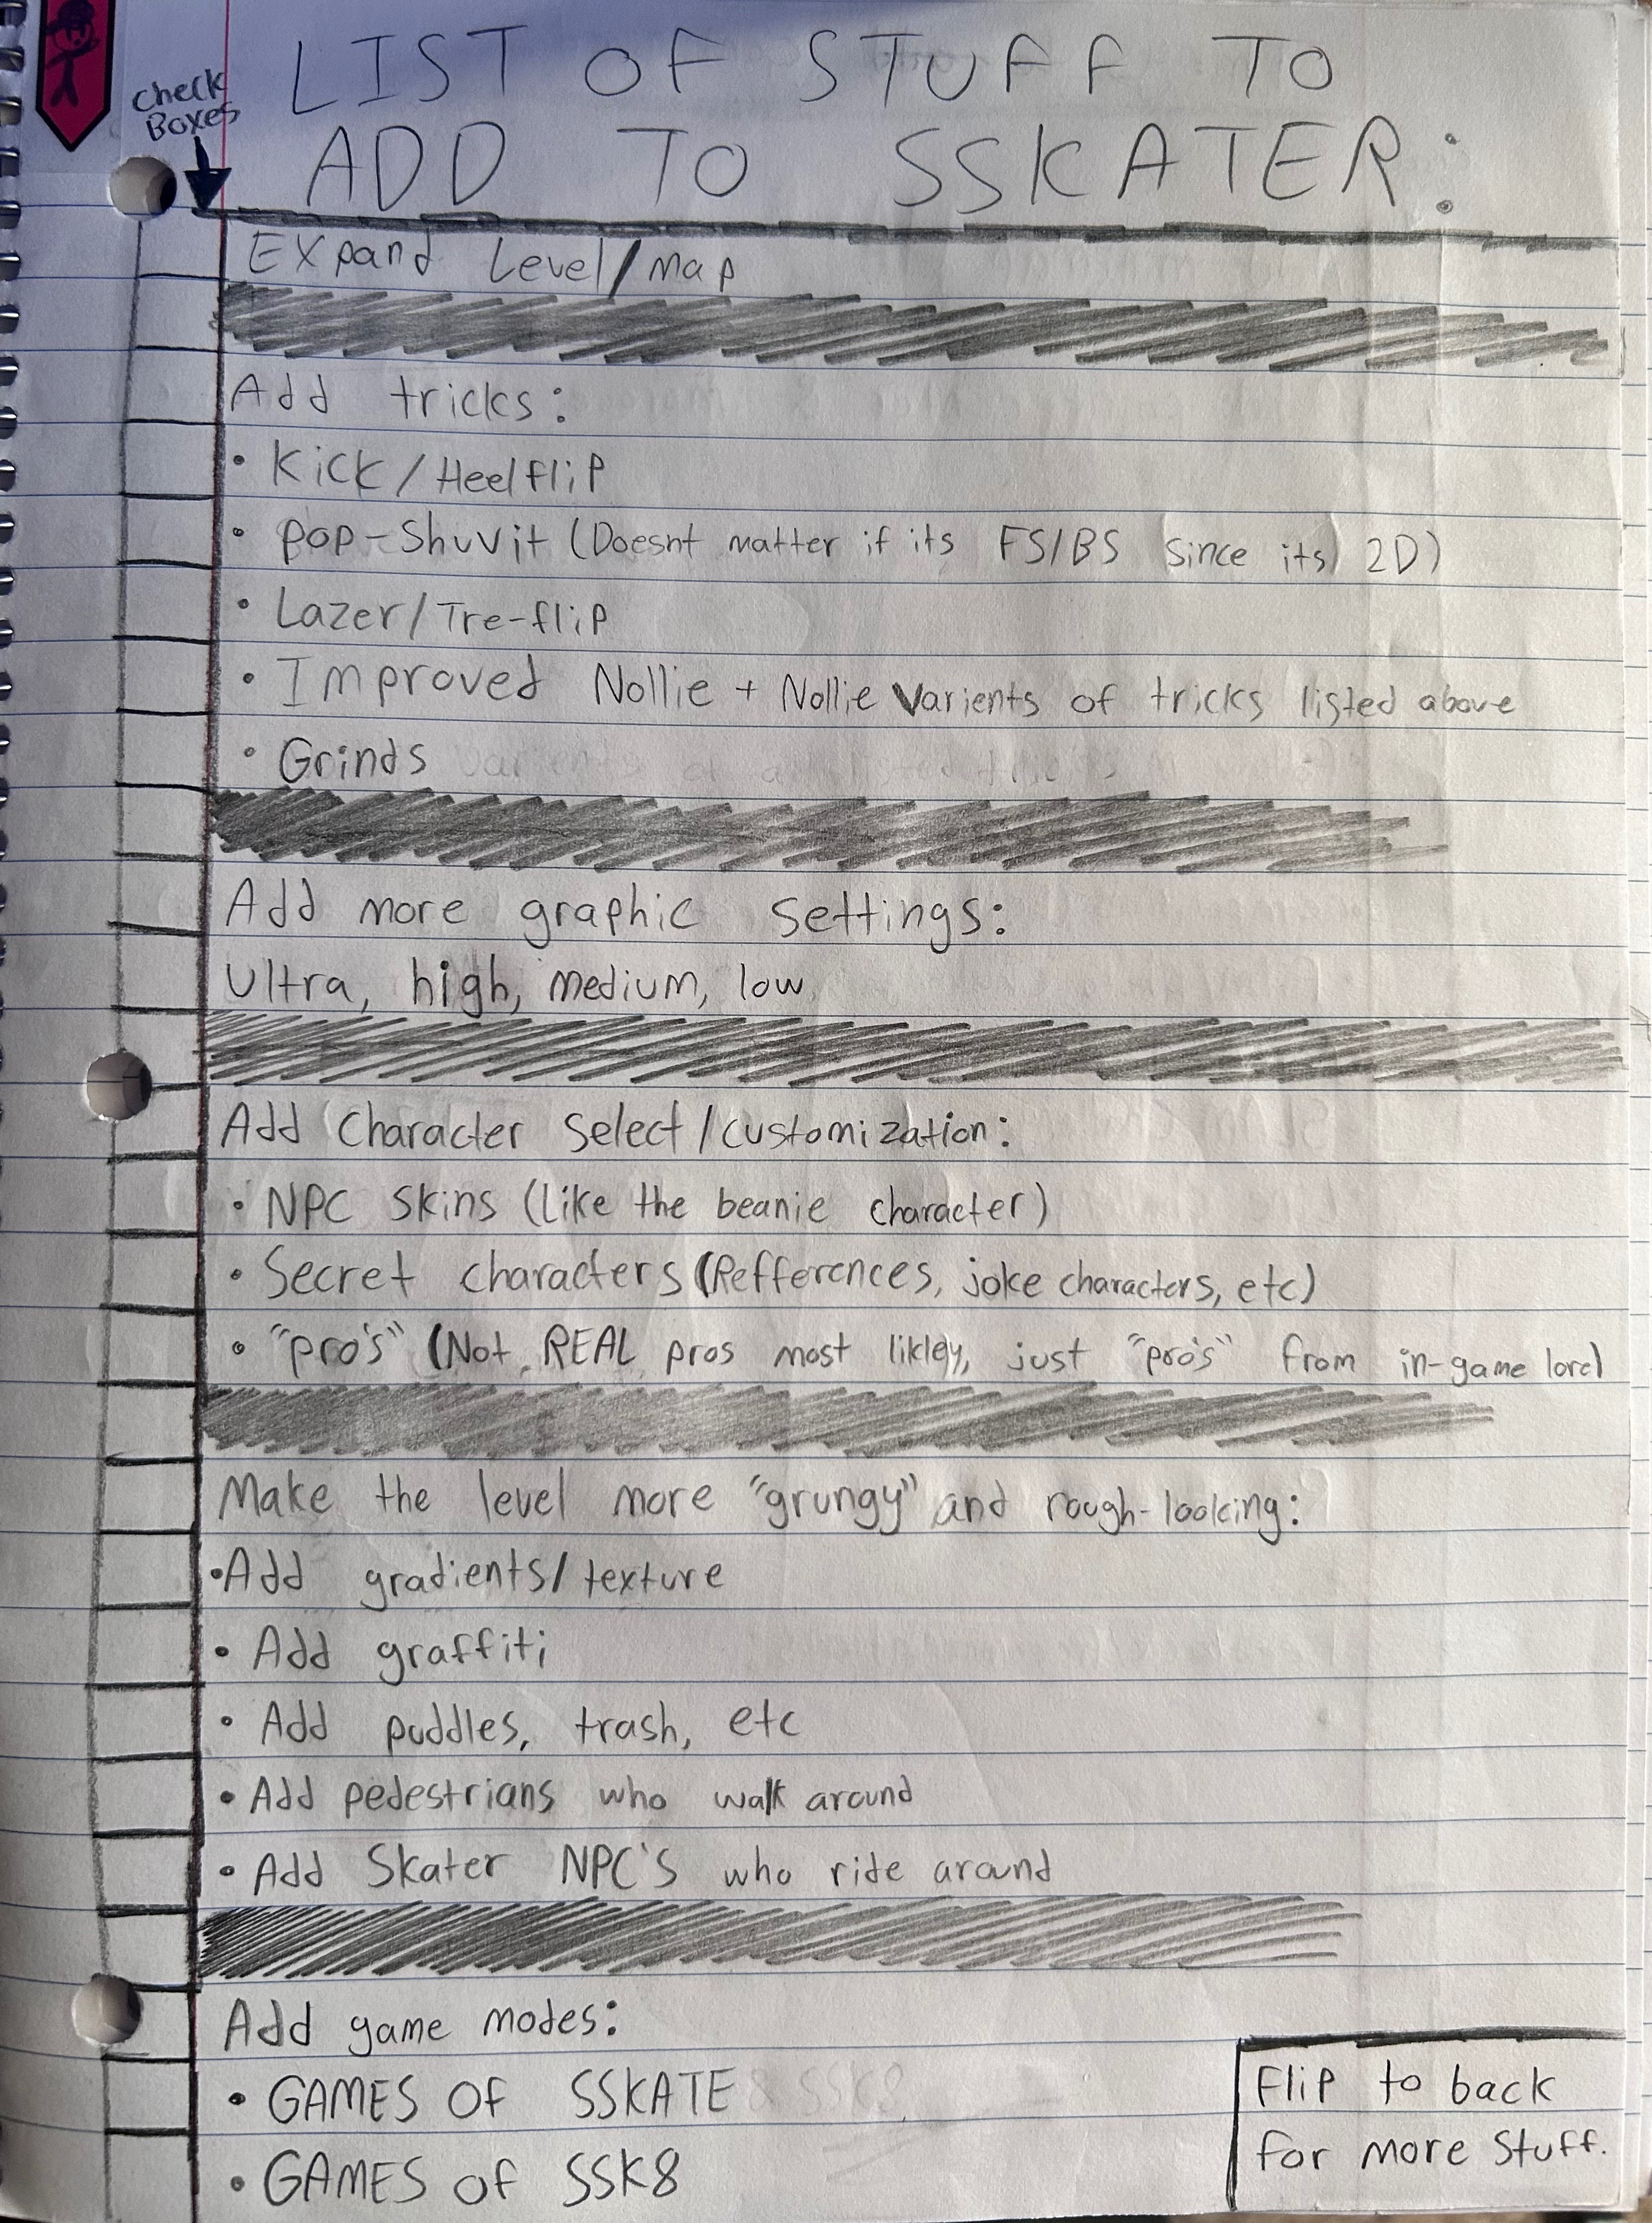 Check
Boxes
LIST OF STUFF TO
ADD TO SSKATER:
Expand Level/map
Add tricks:
• Kick/Heelflip
• pop-Shuvit (Doesnt matter if its FS/BS since its 2D)
• Lazer/Tre-flip
• Improved Nollie + Nollie Varients of tricks listed above
• Grinds
Add more graphic settings:
Ultra, high, medium, low
Add Character Select/customization:
• NPC skins (Like the beanie character)
• Secret characters (Refferences, joke characters, etc)
• "pro's" (Not REAL pros most likley, just "pro's" from in-game lore)
Make the level more "grungy" and rough-looking:
• Add gradients/texture
• Add graffiti
• Add puddles, trash, etc
• Add pedestrians who walk around
• Add Skater NPC'S who ride around
Add game modes:
• GAMES OF SSKATE
• GAMES OF SSK8
Flip to back
for more stuff.